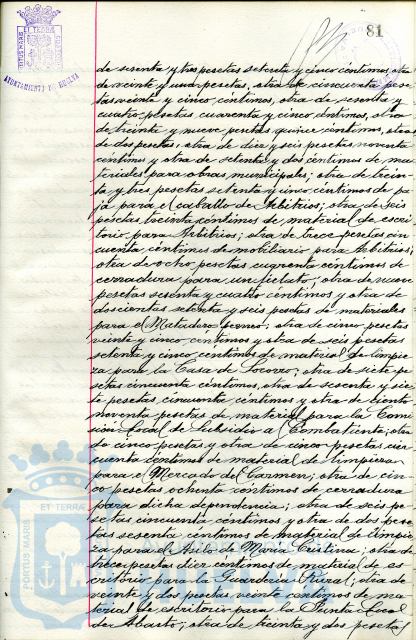 81
PORTUS MARIS ET TERRAE CUSTODIA
AYUNTAMIENTO DE HUELVA
de sesenta y tres pesetas setenta y cinco céntimos, otra
de veinte y una pesetas, otra de cincuenta pese
tas veinte y cinco céntimos, otra de sesenta y
cuatro pesetas cuarenta y cinco céntimos, otra
de treinta y nueve pesetas quince céntimos, otra
de dos pesetas, otra de diez y seis pesetas noventa
céntimos y otra de setenta y dos céntimos de ma
teriales para obras municipales; otra de trein
ta y tres pesetas setenta y cinco céntimos de pa
ja para el caballo de Arbitrios; otra de seis
pesetas treinta céntimos de material de escri
torio para Arbitrios; otra de trece pesetas cin
cuenta céntimos de mobiliario para Arbitrios;
otra de ocho pesetas cuarenta céntimos de
cerradura para un fielato; otra de nueve
pesetas sesenta y cuatro céntimos y otra de
doscientas setenta y seis pesetas de materiales
para el Matadero; otra de cinco pesetas
veinte y cinco céntimos y otra de seis pesetas
setenta y cinco céntimos de material de limpie
za para la Casa de Socorro; otra de siete pe
setas cincuenta céntimos, otra de sesenta y sie
te pesetas cincuenta céntimos y otra de ciento
noventa pesetas de material para la Comi
sión local de Subsidio al Combatiente; otra
de cinco pesetas y otra de cinco pesetas cin
cuenta céntimos de material de limpieza
para el Mercado del Carmen; otra de cin
co pesetas ochenta céntimos de cerradura
para dicha dependencia; otra de seis pe
setas cincuenta céntimos y otra de dos pese
tas sesenta céntimos de material de limpie
za para el Asilo de María Cristina; otra de
trece pesetas diez céntimos de material de es
critorio para la Guardería Rural; otra de
veinte y dos pesetas veinte céntimos de ma
terial de escritorio para la Junta Local
de Abasto; otra de treinta y dos pesetas
PORTUS MARIS ET TERRAE